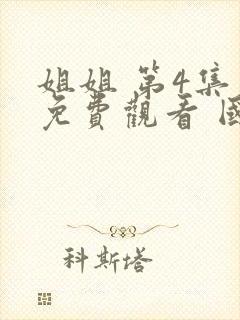 姐姐 第4集
免費觀看
科斯塔